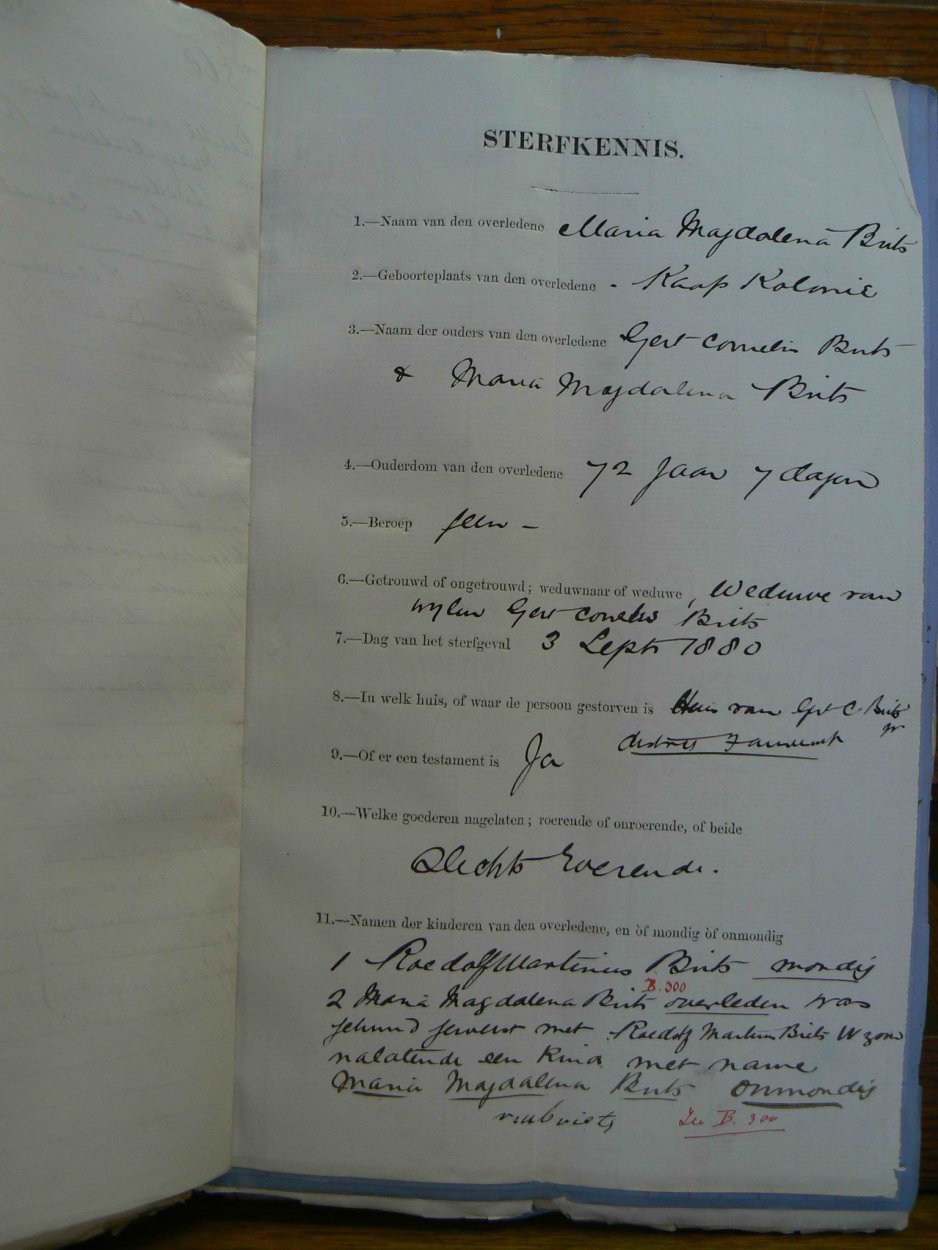 STERFKENNIS.
1.—Naam van den overledene Maria Magdalena Brits
2.—Geboorteplaats van den overledene - Kaap Kolonie
3.—Naam der ouders van den overledene Gert Cornelis Brits
& Maria Magdalena Brits
4.—Ouderdom van den overledene 72 Jaar 7 dagen
5.—Beroep geen -
6.—Getrouwd of ongetrouwd; weduwnaar of weduwe, Weduwe van
wylen Gert Cornelis Brits
7.—Dag van het sterfgeval 3 Sept 1880
8.—In welk huis, of waar de persoon gestorven is Huis van Gert C. Brits
district
9.—Of er een testament is Ja
10.—Welke goederen nagelaten; roerende of onroerende, of beide
Slechts roerende.
11.—Namen der kinderen van den overledene, en òf mondig òf onmondig
1 Roedolf Martinus Brits mondig
B. 300
2 Maria Magdalena Brits overleden was
gehuwd geweest met Roedolf Martin Brits W zoon
nalatende een kind met name
Maria Magdalena Brits onmondig
B. 300